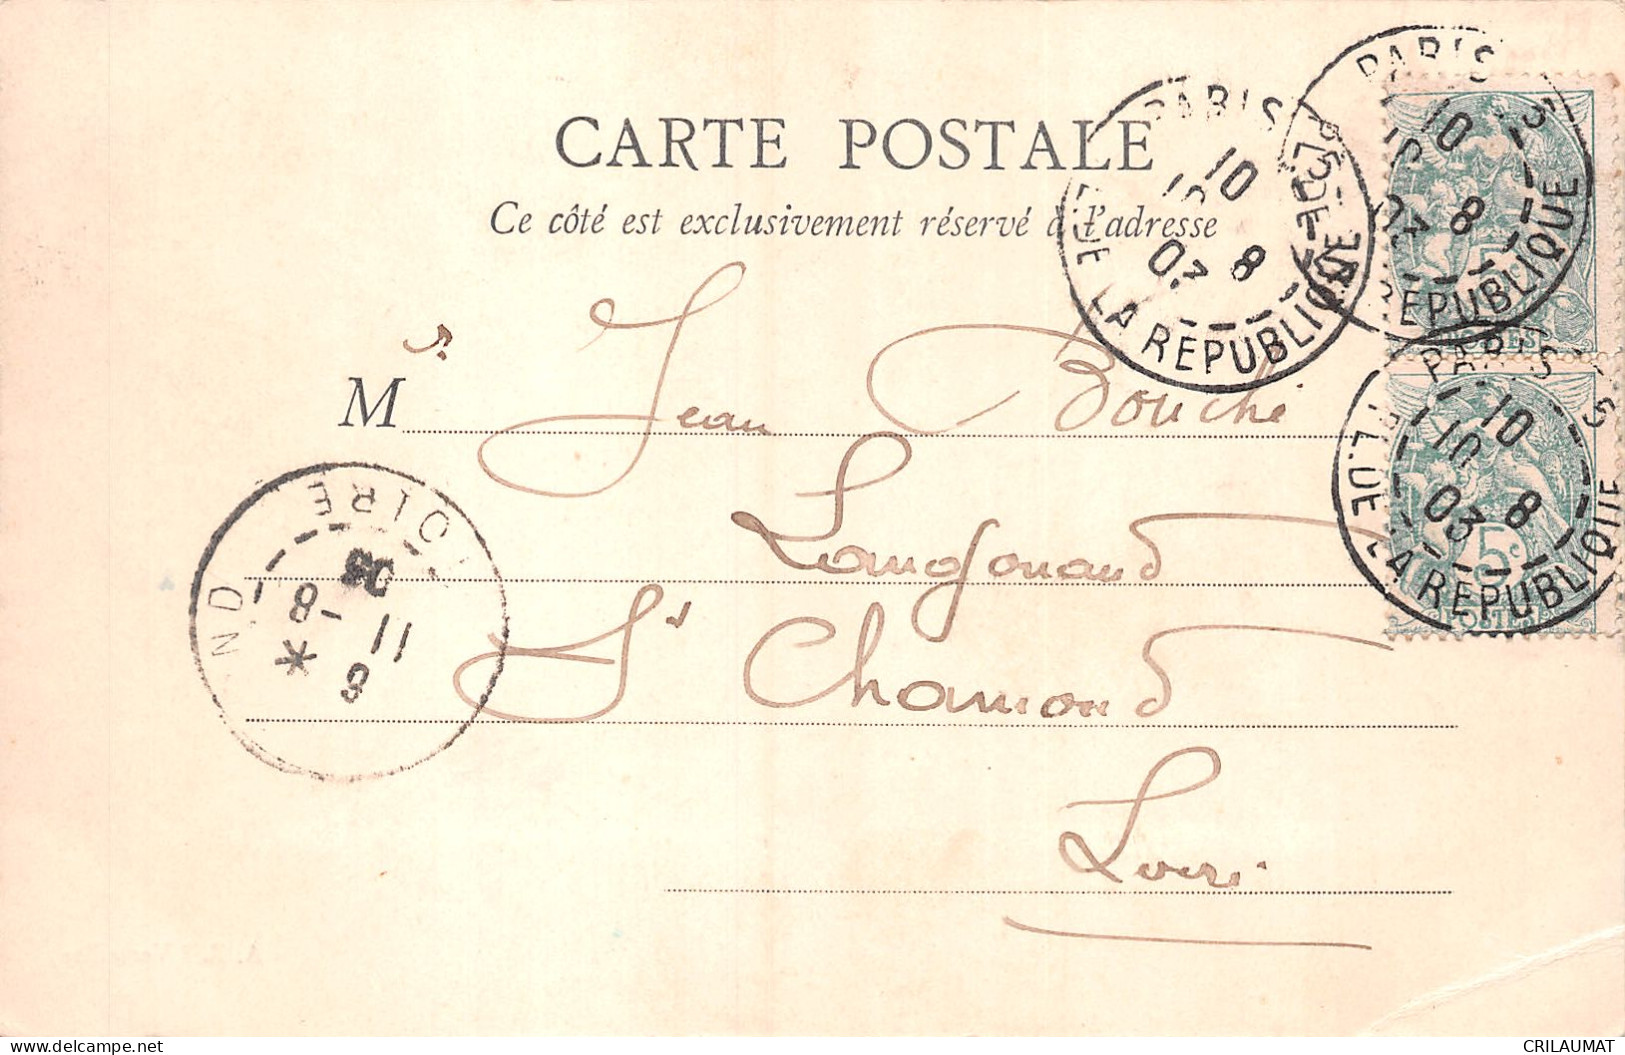 CARTE POSTALE
Ce côté est exclusivement réservé à l'adresse
PARIS
10
10 8
03
LA REPUBLIQUE
PARIS
10
8
REPUBLIQUE
POSTES
PARIS
10
10 8
03
PL. DE LA REPUBLIQUE
5c
POSTES
Mr Jean Bouché
St Chamond
Loire
LOIRE
ND
6
11
-8
03
delcampe.net
CRILAUMAT